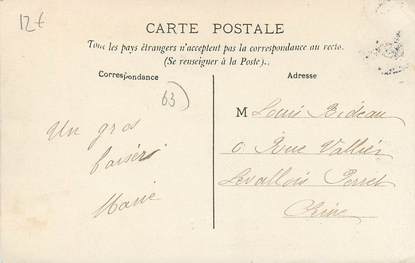 12€
CARTE POSTALE
Tous les pays étrangers n'acceptent pas la correspondance au recto.
(Se renseigner à la Poste).
Correspondance
Adresse
63
M Louis Bideau
Rue Vallier
Levallois Perret
Un gros
baiser
Marie